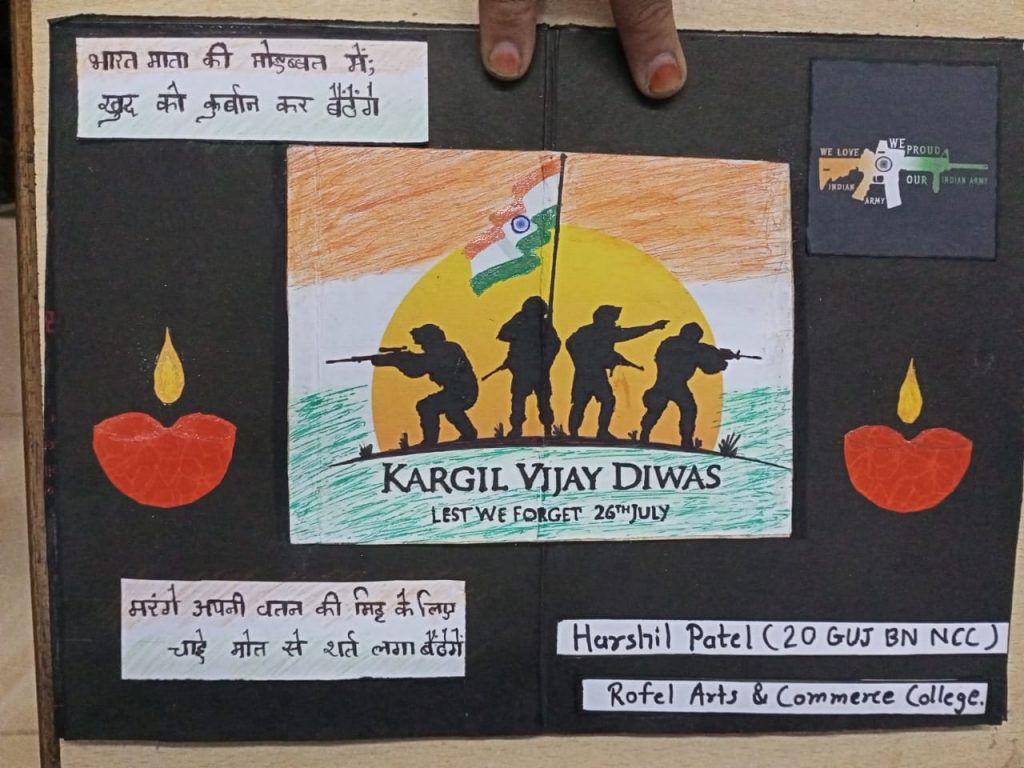 भारत माता की मोहब्बत में;
खुद को कुर्बान कर बैठेंगे
WE LOVE WE PROUD
INDIAN OUR INDIAN ARMY
ARMY
KARGIL VIJAY DIWAS
LEST WE FORGET 26TH JULY
मरंगे अपनी वतन की मिट्ट के लिए
चाहे मोत से शर्त लगा बैठेगें
Harshil Patel (20 GUJ BN NCC)
Rofel Arts & Commerce College.